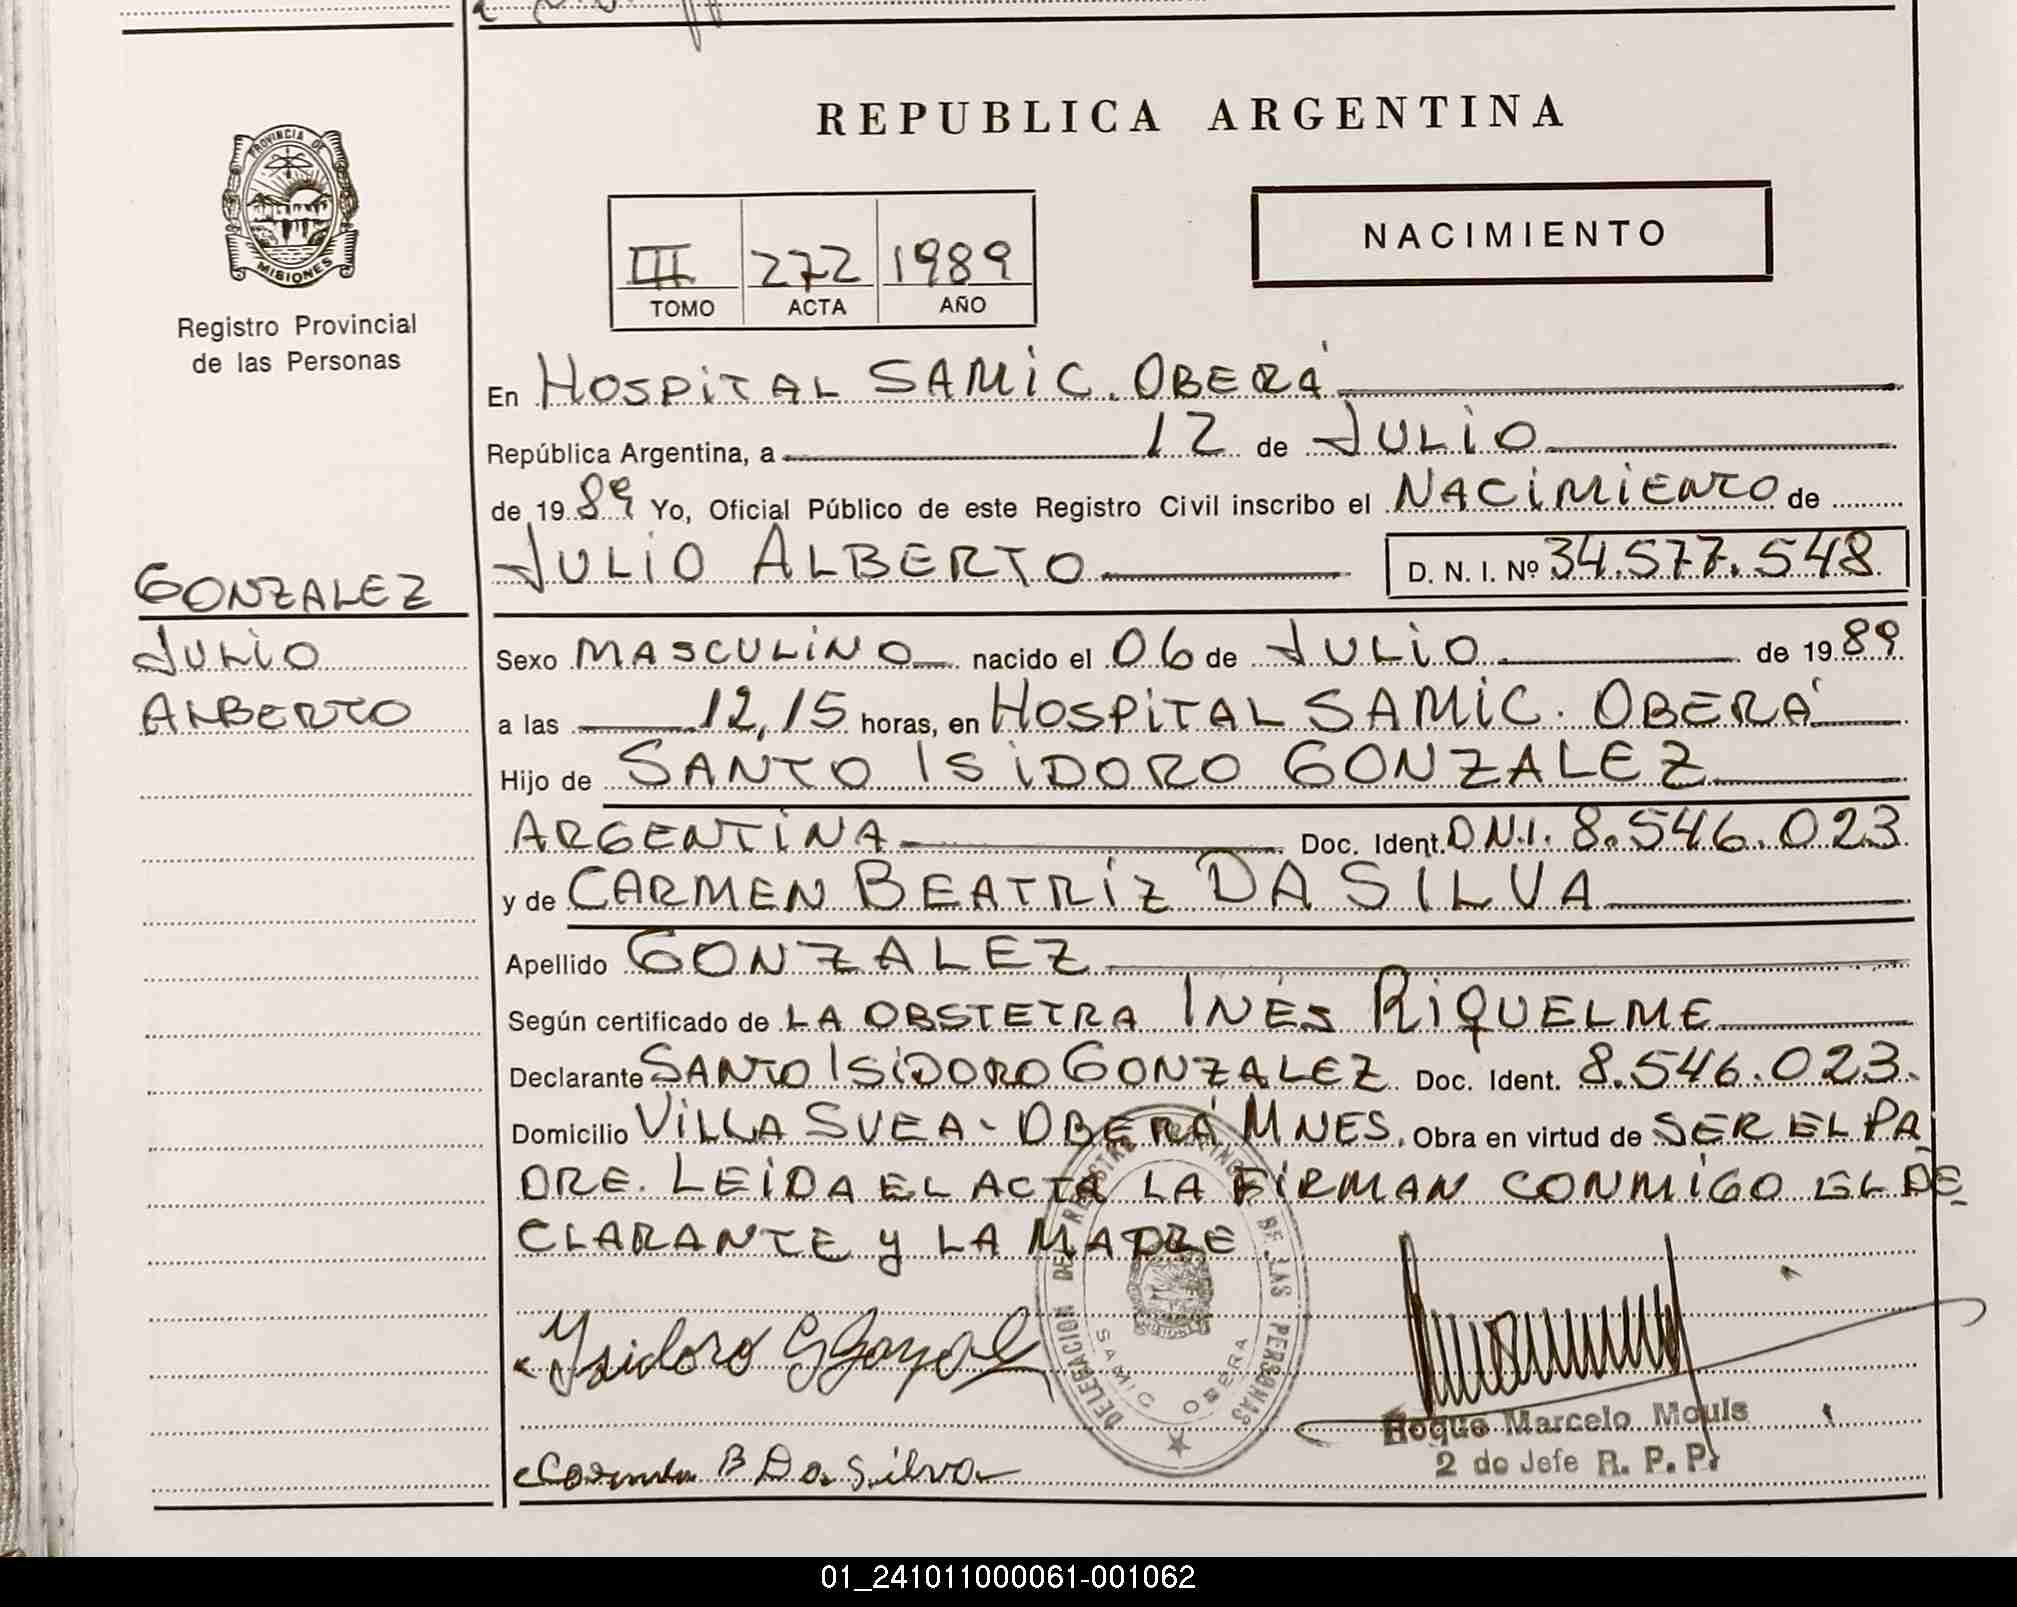 REPUBLICA ARGENTINA
PROVINCIA DE
MISIONES
Registro Provincial
de las Personas
NACIMIENTO
III 272 1989
TOMO ACTA AÑO
En HOSPITAL SAMIC. OBERÁ
República Argentina, a 12 de JULIO
de 1989 Yo, Oficial Público de este Registro Civil inscribo el NACIMIENTO de
JULIO ALBERTO D. N. I. Nº 34.577.548
GONZALEZ
JULIO
ALBERTO
Sexo MASCULINO nacido el 06 de JULIO de 1989
a las 12,15 horas, en HOSPITAL SAMIC. OBERÁ
Hijo de SANTO ISIDORO GONZALEZ
ARGENTINA Doc. Ident. D.N.I. 8.546.023
y de CARMEN BEATRIZ DA SILVA
Apellido GONZALEZ
Según certificado de LA OBSTETRA INÉS RIQUELME
Declarante SANTO ISIDORO GONZALEZ Doc. Ident. 8.546.023.
Domicilio VILLA SVEA - OBERÁ MNES. Obra en virtud de SER EL PA
DRE. LEIDA EL ACTA LA FIRMAN CONMIGO EL DE
CLARANTE Y LA MADRE
DELEGACION DEL REGISTRO PROVINCIAL DE LAS PERSONAS
SAMIC OBERA
Isidoro
B Da Silva
Roque Marcelo Mouls
2 do Jefe R. P. P.
01_241011000061-001062